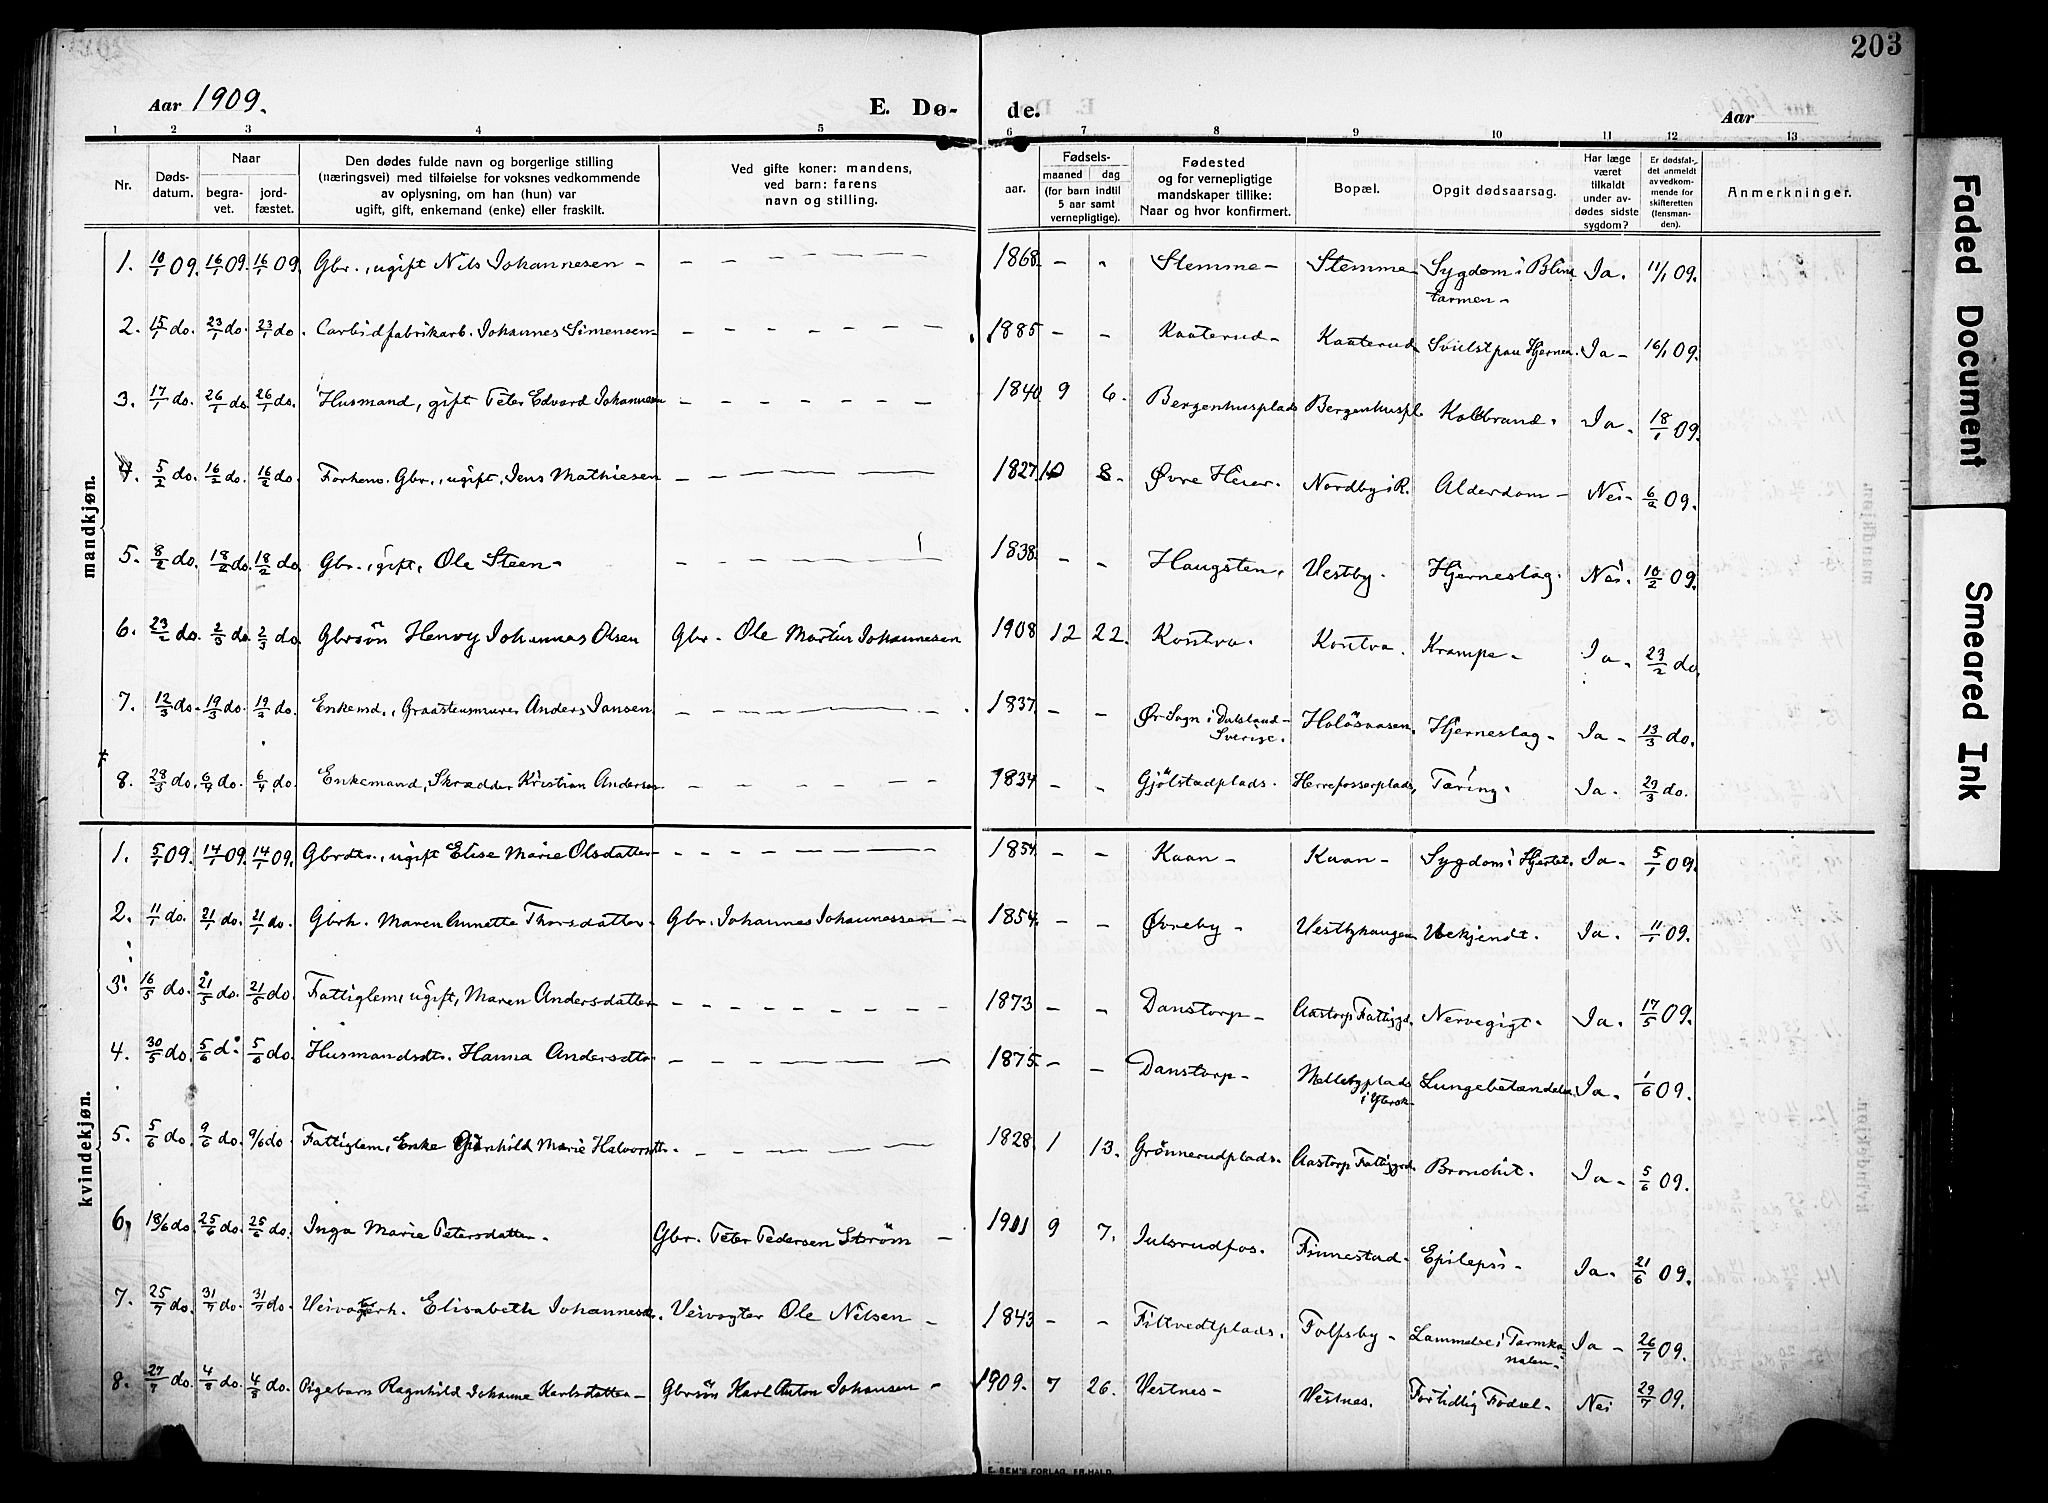 203
Aar 1909.
E. Dø-
de.
Aar
1 2 3 4 5 6 7 8 9 10 11 12 13
Nr.
Dødsdatum.
Naar
begravet.
jordfæstet.
Den dødes fulde navn og borgerlige stilling
(næringsvei) med tilføielse for voksnes vedkommende
av oplysning, om han (hun) var
ugift, gift, enkemand (enke) eller fraskilt.
Ved gifte koner: mandens,
ved barn: farens
navn og stilling.
Fødsels-
aar.
maaned dag
(for barn indtil
5 aar samt
vernepligtige).
Fødested
og for vernepligtige
mandskaper tillike:
Naar og hvor konfirmert.
Bopæl.
Opgit dødsaarsag.
Har læge
været
tilkaldt
under av-
dødes sidste
sygdom?
Er dødsfal-
det anmeldt
av vedkom-
mende for
skifteretten
(lensman-
den).
Anmerkninger.
mandkjøn.
1. 10/1 09. 16/1 09. 16/1 09. Gbr., ugift Nils Johannesen - 1868 - - Stemme - Stemme Sygdom i Blind Ja. 11/1 09.
tarmen -
2. 15/1 do. 23/1 do. 23/1 do. Carbidfabrikarb. Johannes Simensen - 1885 - - Kaaterud - Kaaterud Svulst paa Hjernen. Ja - 16/1 09.
3. 17/1 do. 26/1 do. 26/1 do. Husmand, gift Peter Edvard Johannesen 1840 9 6. Bergenhusplads Bergenhuspl. Koldbrand. Ja. 18/1 09.
4. 5/2 do. 16/2 do. 16/2 do. Forhenv. Gbr., ugift, Jens Mathiesen 1827 10 8. Øvre Heier. Nordby i R. Alderdom - Nei - 6/2 09.
5. 8/2 do. 18/2 do. 18/2 do. Gbr., gift, Ole Steen - 1838 - - Haugsten. Vestby. Hjerneslag. Nei. 10/2 09.
6. 23/2 do. 2/3 do. 2/3 do. Gbrsön Henry Johannes Olsen Gbr. Ole Martin Johannesen 1908 12 22. Kontra. Kontra. Krampe - Ja - 23/2 do.
7. 12/3 do. 19/3 do. 19/3 do. Enkemd., Graastensmurer Anders Jansen 1837 - - Ør Sogn i Dalsland - Holösaasen. Hjerneslag - Ja - 13/3 do.
Sverige.
8. 28/3 do. 6/4 do. 6/4 do. Enkemand, Skrædder Kristian Andersen 1834 - - Gjölstadplads. Herrefosserplads, Tæring. Ja. 29/3 do.
kvindekjøn.
1. 5/1 09. 14/1 09. 14/1 09. Gbrdtr., ugift Elise Marie Olsdatter - 1854 - - Kaan - Kaan - Sygdom i Hjertet. Ja - 5/1 09.
2. 11/1 do. 21/1 do. 21/1 do. Gbrh. Maren Annette Thorsdatter. Gbr. Johannes Johannessen - 1854. - - Øvreby - Vestbyhaugen Ubekjendt. Ja. 11/1 09.
3. 16/5 do. 21/5 do. 21/5 do. Fattiglem, ugift, Maren Andersdatter 1873 - - Danstorp - Aastorp Fattiggd. Nervegigt. Ja. 17/5 09.
4. 30/5 do. 5/6 do. 5/6 do. Husmandsdtr. Hanna Andersdtr 1875. - - Danstorp - Mellebyplads Lungebetændelse Ja. 1/6 09.
5. 5/6 do. 9/6 do. 9/6 do Fattiglem, Enke Gunhild Marie Halvorsdtr. 1828 1 13. Grönnerudplads. Aastorp Fattiggrd. Bronchit. Ja - 5/6 09.
6. 18/6 do. 25/6 do. 25/6 do. Inga Marie Petersdatter. Gbr. Peter Pedersen Ström - 1901 9 7. Julsrudfos. Finnestad. Epilepsi - Ja. 21/6 09.
7. 25/7 do. 31/7 do. 31/7 do. Veivogterh. Elisabeth Johannesdtr. Veivogter Ole Nilsen - 1843 - - Fittvedtplads. Folpsby - Lammelse i Tarmka- Ja - 26/7 09.
nalen -
8. 27/7 do. 4/8 do. 4/8 do. Pigebarn Ragnhild Johanne Karlsdatter - Gbrsön Karl Anton Johansen - 1909. 7 26. Vestnes - Vestnes. Fortidlig Fødsel. Nei 29/7 09.
E. SEM'S FORLAG, FR.HALD.
Faded Document
Smeared Ink